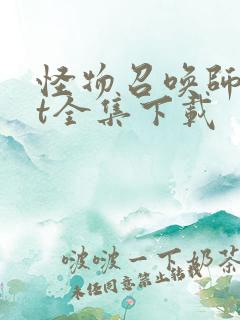 怪物召唤师
t全集下载
啵啵一下奶茶
未经同意禁止转载